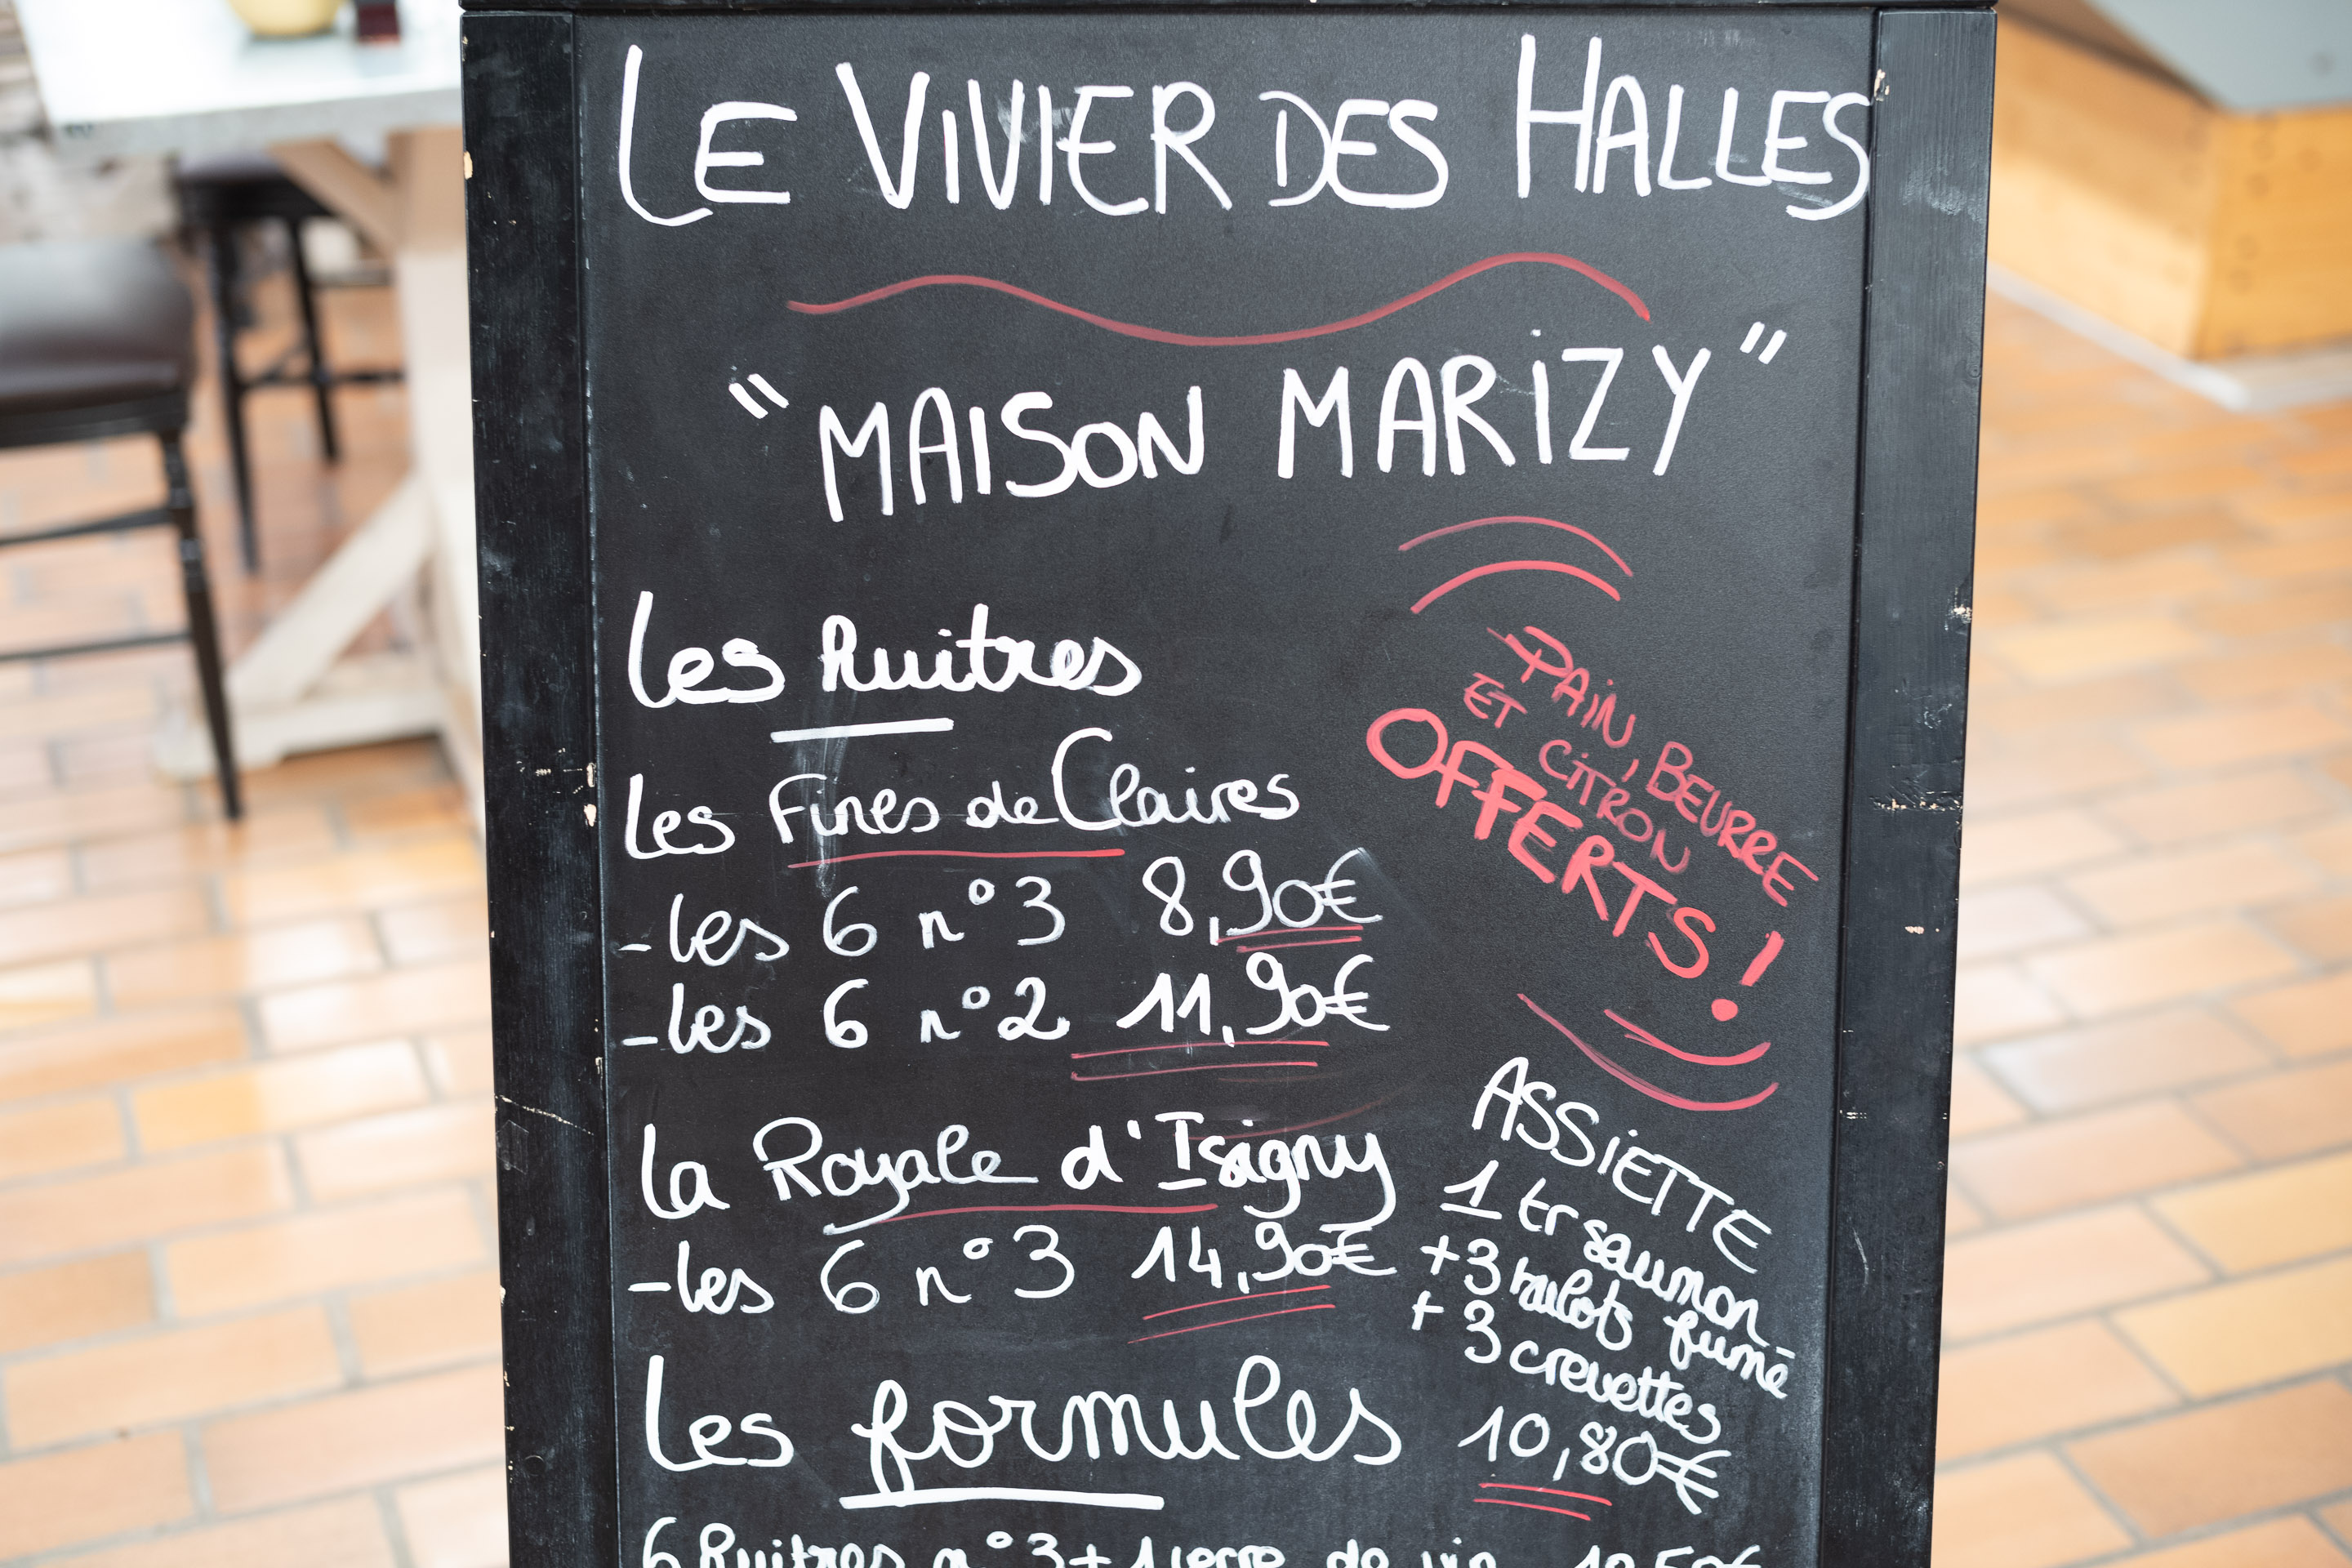 LE VIVIER DES HALLES
"MAISON MARIZY"
Les huitres
PAIN, BEURRE
ET CITRON
OFFERTS!
Les Fines de Claires
-les 6 n°3 8,90€
-les 6 n°2 11,90€
La Royale d'Isigny
-les 6 n°3 14,90€
ASSIETTE
1 tr saumon
fumé
+3 bulots
+3 crevettes
10,80€
Les formules
6 huitres n°3+1 verre de vin